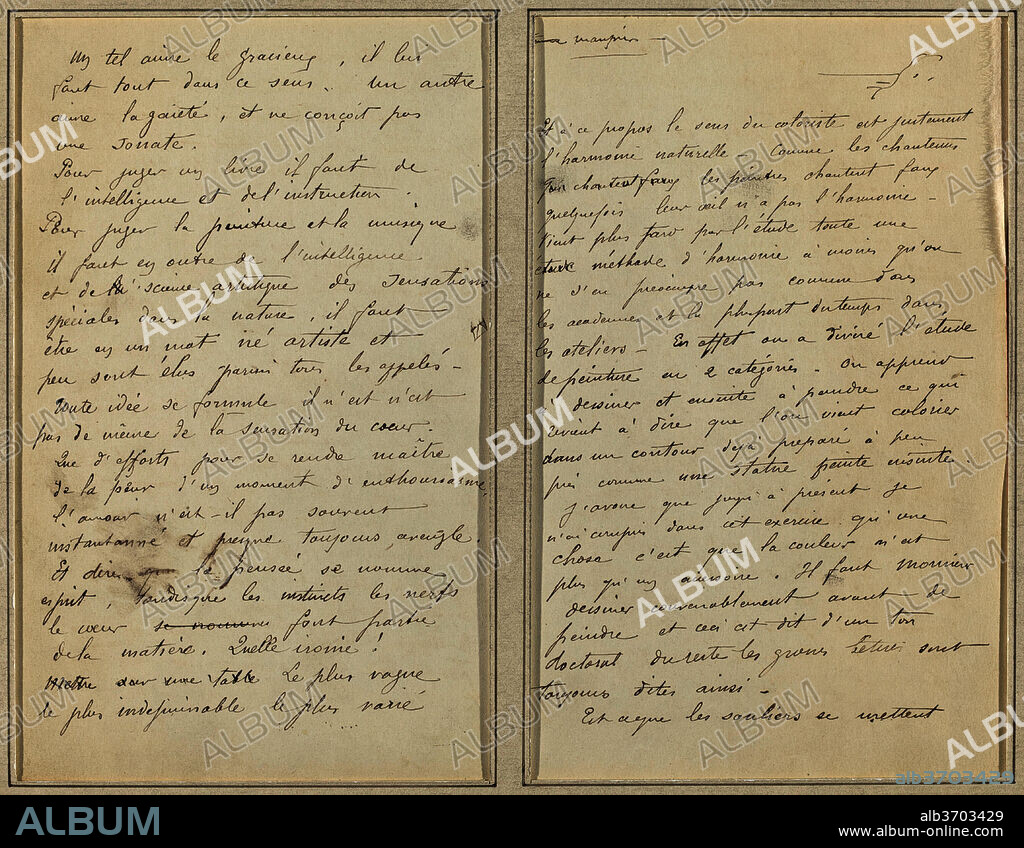 Un tel aime le gracieux, il lui
faut tout dans ce sens. Un autre
aime la gaieté, et ne conçoit pas
une sonate.
Pour juger un livre il faut de
l'intelligence et de l'instruction.
Pour juger la peinture et la musique
il faut en outre de l'intelligence
et de la science artistique des sensations
spéciales dans la nature, il faut
être en un mot né artiste et
peu sont élus parmi tous les appelés -
Toute idée se formule il n'est n'est
pas de même de la sensation du cœur.
Que d'efforts pour se rendre maître
de la peur d'un moment d'enthousiasme,
l'amour n'est-il pas souvent
instantanné et presque toujours aveugle.
Et dire que la pensée se nomme
esprit, tandisque les instincts les nerfs
le cœur se nomme font partie
de la matière. Quelle ironie!
Mettre sur une table Le plus vague
le plus indéfinissable le plus varié
Et à ce propos le sens du coloriste est justement
l'harmonie naturelle - Comme les chanteurs
qui chantent faux les peintres chantent faux
quelquefois leur œil n'a pas l'harmonie -
Vient plus tard par l'étude toute une
étude méthode d'harmonie à moins qu'on
ne s'en préoccupe pas comme dans
les academies et la plupart du temps dans
les ateliers - En effet on a divisé l'étude
de peinture en 2 catégories - On apprend
à dessiner et ensuite à peindre ce qui
revient à dire que l'on vient colorier
dans un contour déjà préparé à peu
près comme une statue peinte ensuite.
J'avoue que jusqu'à présent je
n'ai compris dans cet exercice qu'une
chose c'est que la couleur n'est
plus qu'un accessoire. Il faut Monsieur
dessiner convenablement avant de
peindre et ceci est dit d'un ton
doctoral du reste les grosses bêtises sont
toujours dites ainsi -
Est ce que les souliers se mettent
ALBUM
alb3703429
www.album-online.com